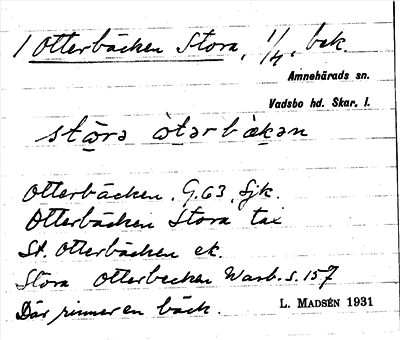 1 Otterbäcken Stora, 1/4, bek.
Amnehärads sn.
Vadsbo hd. Skar. l.
stɷ̄rə òtərbæ̀kən
Otterbäcken. G.63, Sjk.
Otterbäcken Stora tax
St. Otterbäcken ek.
Stora Otterbecken Warb. s. 157
Där rinner en bäck.
L. MADSÉN 1931